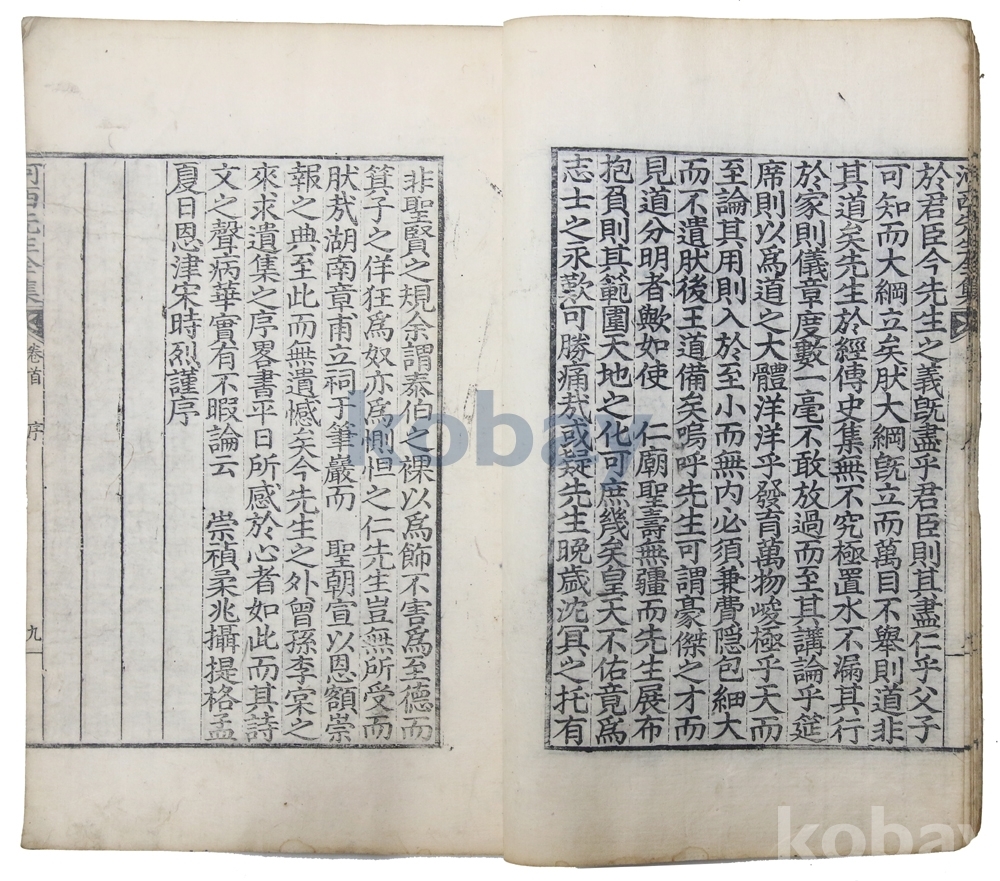 於君臣今先生之義旣盡乎君臣則其盡仁乎父子
可知而大綱立矣肰大綱旣立而萬目不舉則道非
其道矣先生於經傳史集無不究極置水不漏其行
於家則儀章度數一毫不敢放過而至其講論乎筵
席則以爲道之大體洋洋乎發育萬物峻極乎天而
至論其用則入於至小而無內必須兼費隱包細大
而不遺肰後王道備矣嗚呼先生可謂豪傑之才而
見道分明者歟如使 仁廟聖壽無疆而先生展布
抱負則其範圍天地之化可庶幾矣皇天不佑竟爲
志士之永歎可勝痛㢤或疑先生晚歲沈冥之托有
非聖賢之規余謂泰伯之裸以爲飾不害爲至德而
箕子之佯狂爲奴亦爲惻怛之仁先生豈無所受而
肰㢤湖南章甫立祠于筆巖而 聖朝宣以恩額崇
報之典至此而無遺憾矣今先生之外曾孫李㝎之
來求遺集之序畧書平日所感於心者如此而其詩
文之聲病華實有不暇論云 崇禎柔兆攝提格孟
夏日恩津宋時烈謹序
河西先生全集 卷首 序 九
kobay
kobay